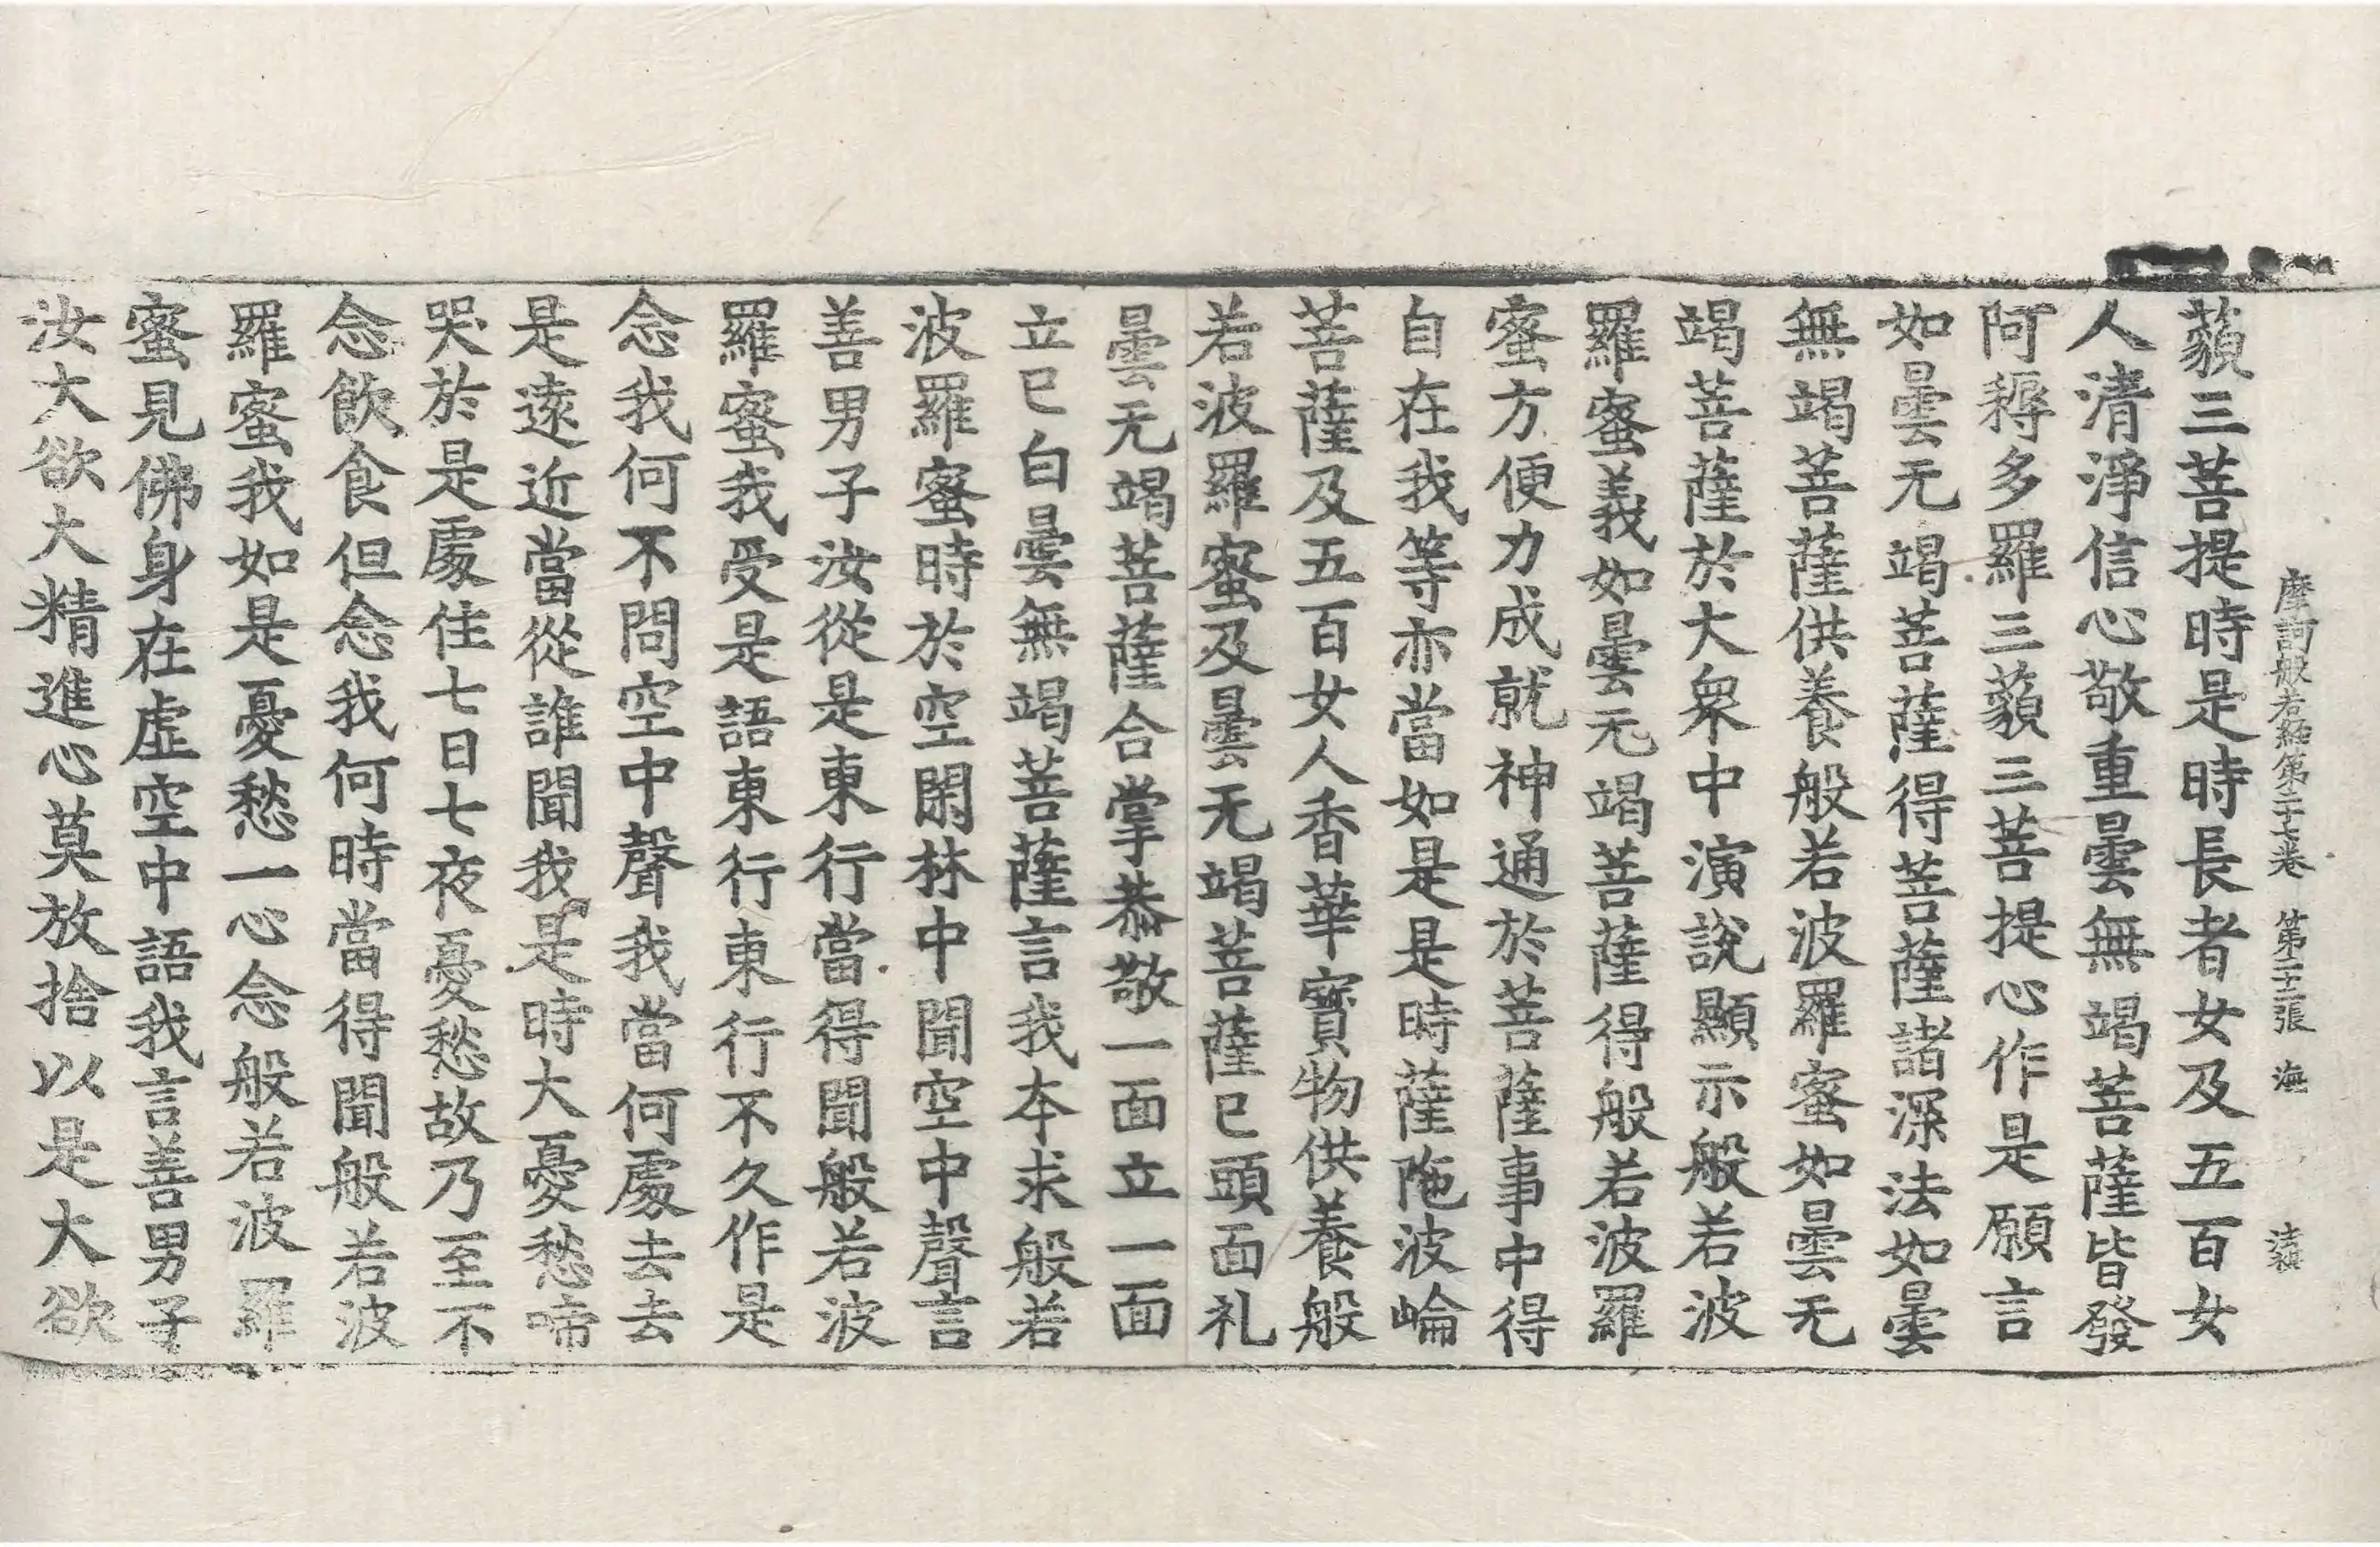 摩訶般若經第二十七卷　第二十二張　海
藐三菩提時是時長者女及五百女
人清淨信心敬重曇無竭菩薩皆發
阿耨多羅三藐三菩提心作是願言
如曇无竭菩薩得菩薩諸深法如曇
無竭菩薩供養般若波羅蜜如曇无
竭菩薩於大衆中演說顯示般若波
羅蜜義如曇无竭菩薩得般若波羅
蜜方便力成就神通於菩薩事中得
自在我等亦當如是是時薩陁波崘
菩薩及五百女人香華寶物供養般
若波羅蜜及曇无竭菩薩已頭面礼
曇无竭菩薩合掌恭敬一面立一面
立已白曇無竭菩薩言我本求般若
波羅蜜時於空閑林中聞空中聲言
善男子汝從是東行當得聞般若波
羅蜜我受是語東行東行不久作是
念我何不問空中聲我當何處去去
是遠近當從誰聞我是時大憂愁啼
哭於是處住七日七夜憂愁故乃至不
念飮食但念我何時當得聞般若波
羅蜜我如是憂愁一心念般若波羅
蜜見佛身在虛空中語我言善男子
汝大欲大精進心莫放捨以是大欲